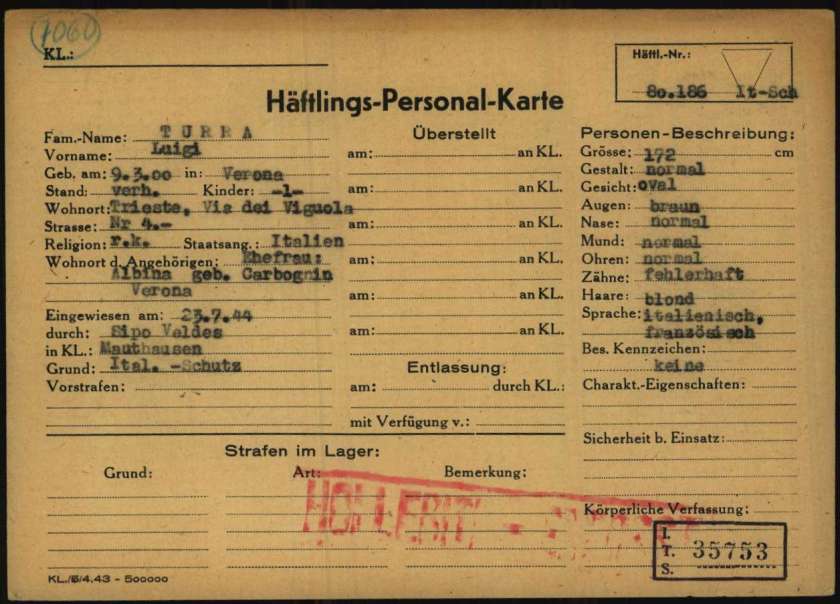 7060
KL.:
Häftl.-Nr.:
80.186 It-Sch
Häftlings-Personal-Karte
Fam.-Name: TURRA
Vorname: Luigi
Geb. am: 9.3.00 in: Verona
Stand: verh. Kinder: -1-
Wohnort: Trieste, Via dei Viguola
Strasse: Nr 4.-
Religion: r.k. Staatsang.: Italien
Wohnort d. Angehörigen: Ehefrau:
Albina geb. Carbognin
Verona
Eingewiesen am: 23.7.44
durch: Sipo Veldes
in KL.: Mauthausen
Grund: Ital. -Schutz
Vorstrafen:
Überstellt
am: an KL.
am: an KL.
am: an KL.
am: an KL.
am: an KL.
am: an KL.
Entlassung:
am: durch KL.:
mit Verfügung v.:
Personen-Beschreibung:
Grösse: 172 cm
Gestalt: normal
Gesicht: oval
Augen: braun
Nase: normal
Mund: normal
Ohren: normal
Zähne: fehlerhaft
Haare: blond
Sprache: italienisch,
französisch
Bes. Kennzeichen:
keine
Charakt.-Eigenschaften:
Sicherheit b. Einsatz:
Körperliche Verfassung:
Strafen im Lager:
Grund: Art: Bemerkung:
HOLLERITH
I.
T. 35753
S.
KL./5/4.43 - 500000